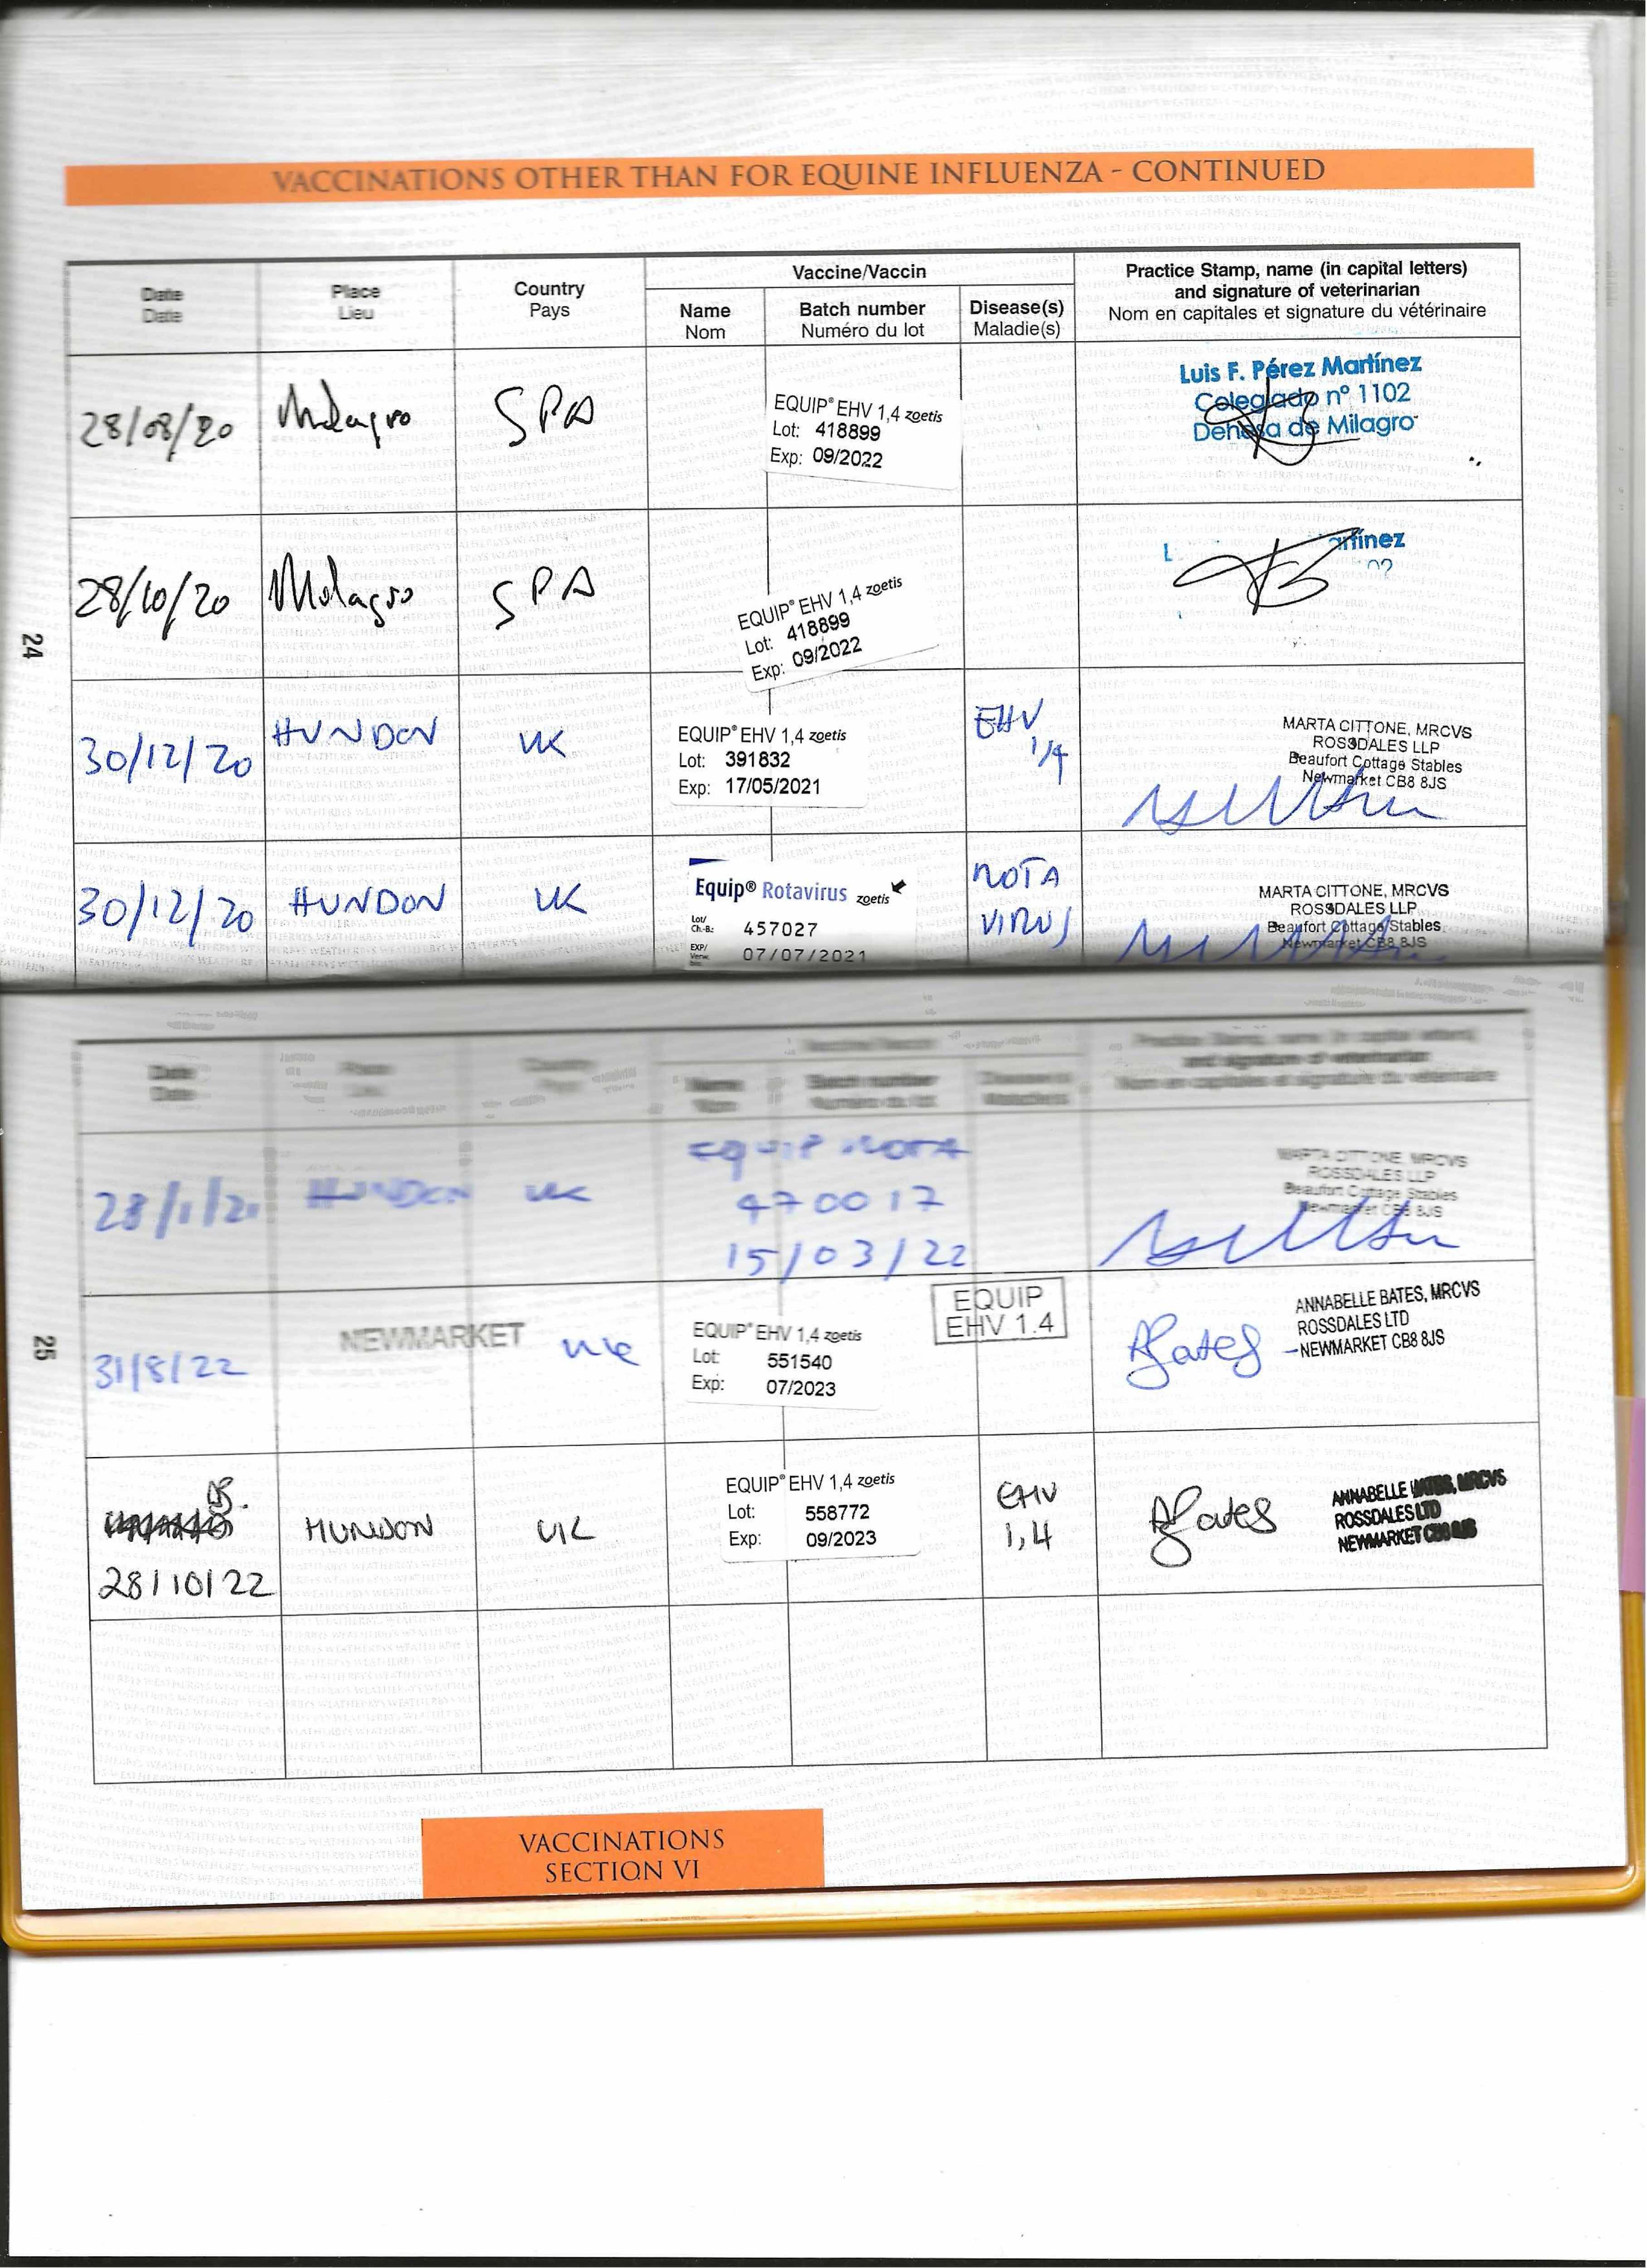 VACCINATIONS OTHER THAN FOR EQUINE INFLUENZA - CONTINUED
Date
Date
Place
Lieu
Country
Pays
Vaccine/Vaccin
Name
Nom
Batch number
Numéro du lot
Disease(s)
Maladie(s)
Practice Stamp, name (in capital letters)
and signature of veterinarian
Nom en capitales et signature du vétérinaire
28/08/20 Milagro SPA
EQUIP® EHV 1,4 zoetis
Lot: 418899
Exp: 09/2022
Luis F. Pérez Martínez
Colegiado nº 1102
Dehesa de Milagro
28/10/20 Milagro SPA
EQUIP® EHV 1,4 zoetis
Lot: 418899
Exp: 09/2022
24
30/12/20 HUNDON UK
EQUIP® EHV 1,4 zoetis
Lot: 391832
Exp: 17/05/2021
EHV
1/4
MARTA CITTONE, MRCVS
ROSSDALES LLP
Beaufort Cottage Stables
Newmarket CB8 8JS
30/12/20 HUNDON UK
Equip® Rotavirus zoetis
Lot/
Ch.-B.: 457027
EXP/
Verw. 07/07/2021
ROTA
VIRUS
MARTA CITTONE, MRCVS
ROSSDALES LLP
Beaufort Cottage Stables
Newmarket CB8 8JS
Date
Date
Place
Country
Name
Nom
Batch number
Numéro du lot
Practice Stamp, name (in capital letters)
and signature of veterinarian
Nom en capitales et signature du vétérinaire
28/1/21 HUNDON UK
EQUIP ROTA
470017
15/03/22
MARTA CITTONE, MRCVS
ROSSDALES LLP
Beaufort Cottage Stables
Newmarket CB8 8JS
25
31/8/22 NEWMARKET UK
EQUIP® EHV 1,4 zoetis
Lot: 551540
Exp: 07/2023
EQUIP
EHV 1.4
ABates
ANNABELLE BATES, MRCVS
ROSSDALES LTD
NEWMARKET CB8 8JS
28/10/22 HUNDON UK
EQUIP® EHV 1,4 zoetis
Lot: 558772
Exp: 09/2023
EHV
1,4
ABates
ANNABELLE BATES, MRCVS
ROSSDALES LTD
NEWMARKET CB8 8JS
VACCINATIONS
SECTION VI